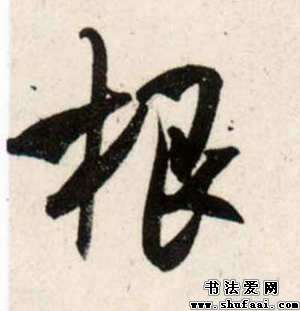 根
书法爱网
www.shufaai.com